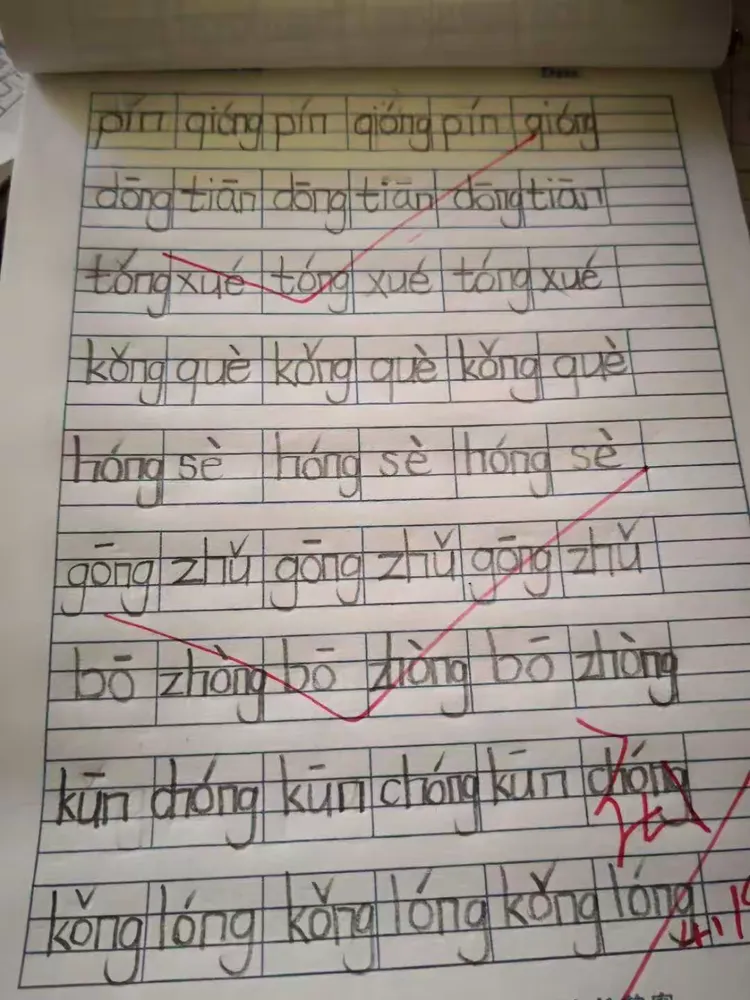 pín qióng pín qióng pín qióng
dōng tiān dōng tiān dōng tiān
tǒng xué tóng xué tóng xué
kǒng què kǒng què kǒng què
hóng sè hóng sè hóng sè
gōng zhǔ gōng zhǔ gōng zhǔ
bō zhòng bō zhòng bō zhòng
kūn chóng kūn chóng kūn chóng
kǒng lóng kǒng lóng kǒng lóng